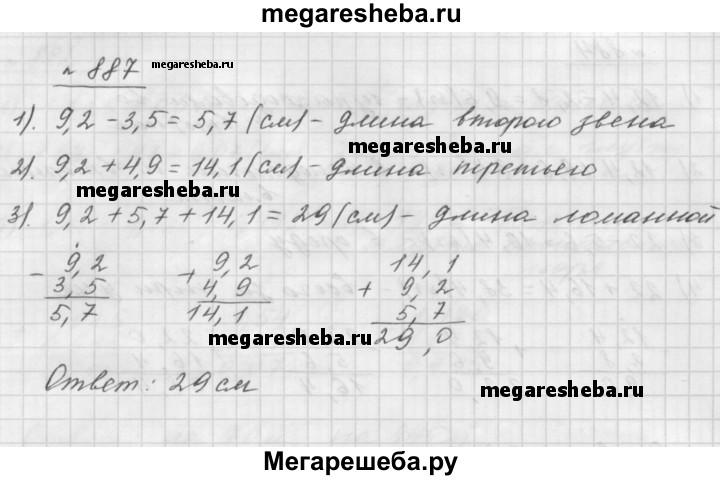 megaresheba.ru
№ 887 megaresheba.ru
1). 9,2 - 3,5 = 5,7 (см) - длина второго звена
megaresheba.ru
2). 9,2 + 4,9 = 14,1 (см) - длина третьего
megaresheba.ru
3). 9,2 + 5,7 + 14,1 = 29 (см) - длина ломанной
- 9,2 + 9,2 14,1
3,5 4,9 + 9,2
5,7 14,1 5,7
megaresheba.ru 29,0
Ответ: 29 см
megaresheba.ru
Мегарешеба.ру